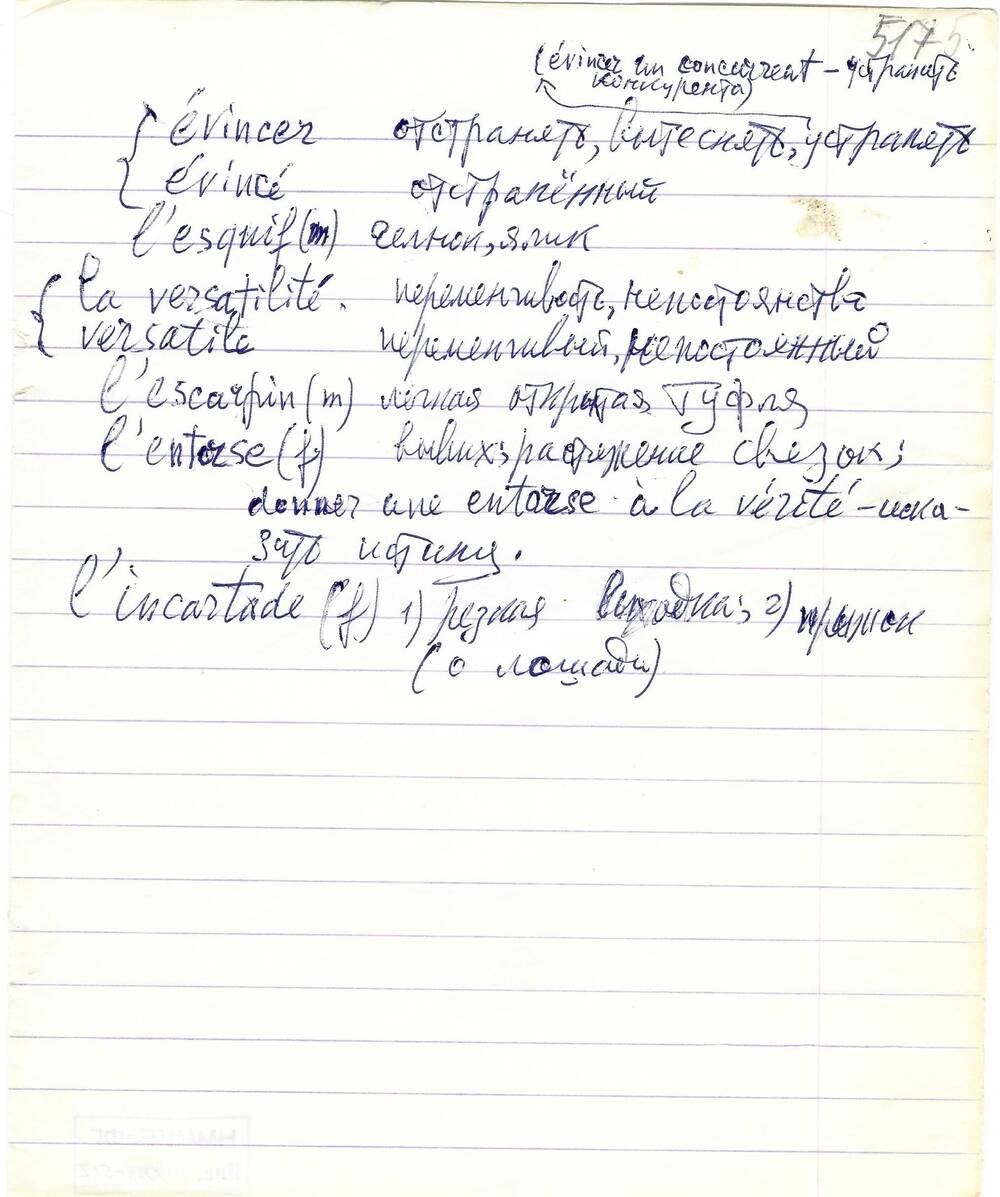 517
(évincer un concurrent – устранить
конкурента)
évincer отстранять, вытеснять, устранять
évincé отстранённый
l'esquif (m) челнок, ялик
la versatilité. переменчивость, непостоянства
versatile переменчивый, непостоянный
l'escarpin (m) лёгкая открытая туфля
l'entorse (f) вывих; растяжение связок;
donner une entorse à la vérité – иска-
зить истину.
l'incartade (f) 1) резкая выходка; 2) прыжок
(о лошади)